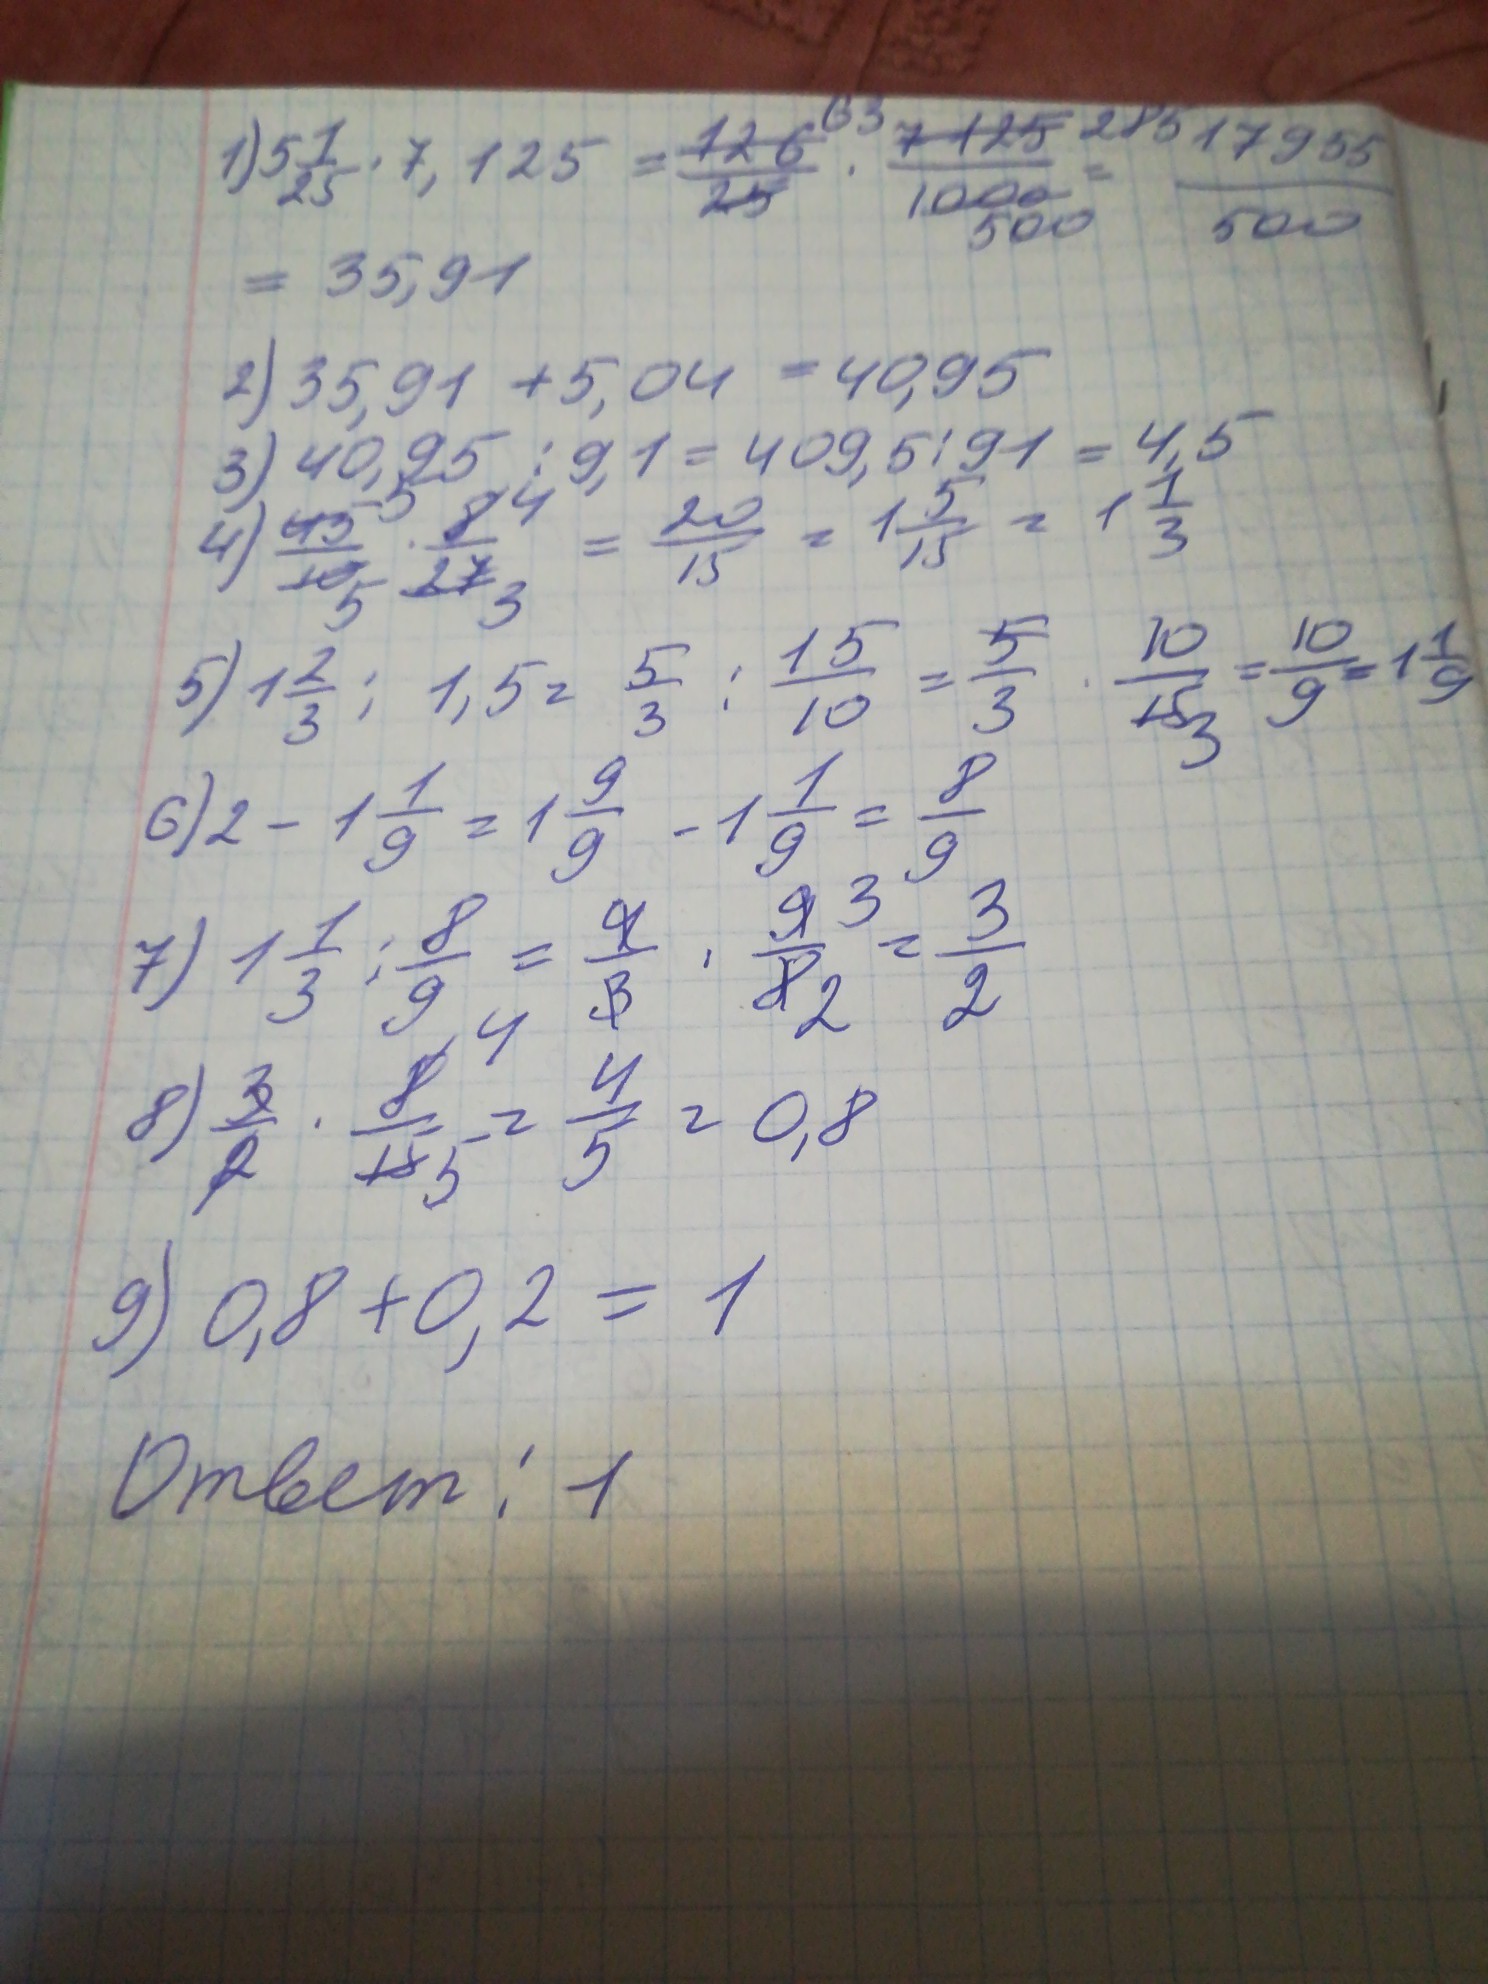 1) 5 1/25 · 7,125 = 126/25 63 · 7125/1000 285 500 = 17955/500
= 35,91
2) 35,91 + 5,04 = 40,95
3) 40,95 : 9,1 = 409,5 : 91 = 4,5
4) 45/10 5 5 · 8/27 4 3 = 20/15 = 1 5/15 = 1 1/3
5) 1 2/3 : 1,5 = 5/3 : 15/10 = 5/3 · 10/15 3 = 10/9 = 1 1/9
6) 2 - 1 1/9 = 1 9/9 - 1 1/9 = 8/9
7) 1 1/3 : 8/9 = 4/3 · 9/8 3 2 = 3/2
8) 3/2 · 8/15 4 5 = 4/5 = 0,8
9) 0,8 + 0,2 = 1
Ответ : 1